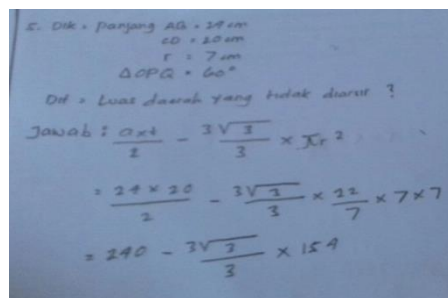 5. Dik = Panjang AB = 24 cm
CD = 20 cm
r = 7 cm
△OPQ = 60°
Dit = Luas daerah yang tidak diarsir ?
Jawab : a×t/2 - 3√3/3 × πr²
= 24 × 20/2 - 3√3/3 × 22/7 × 7 × 7
= 240 - 3√3/3 × 154